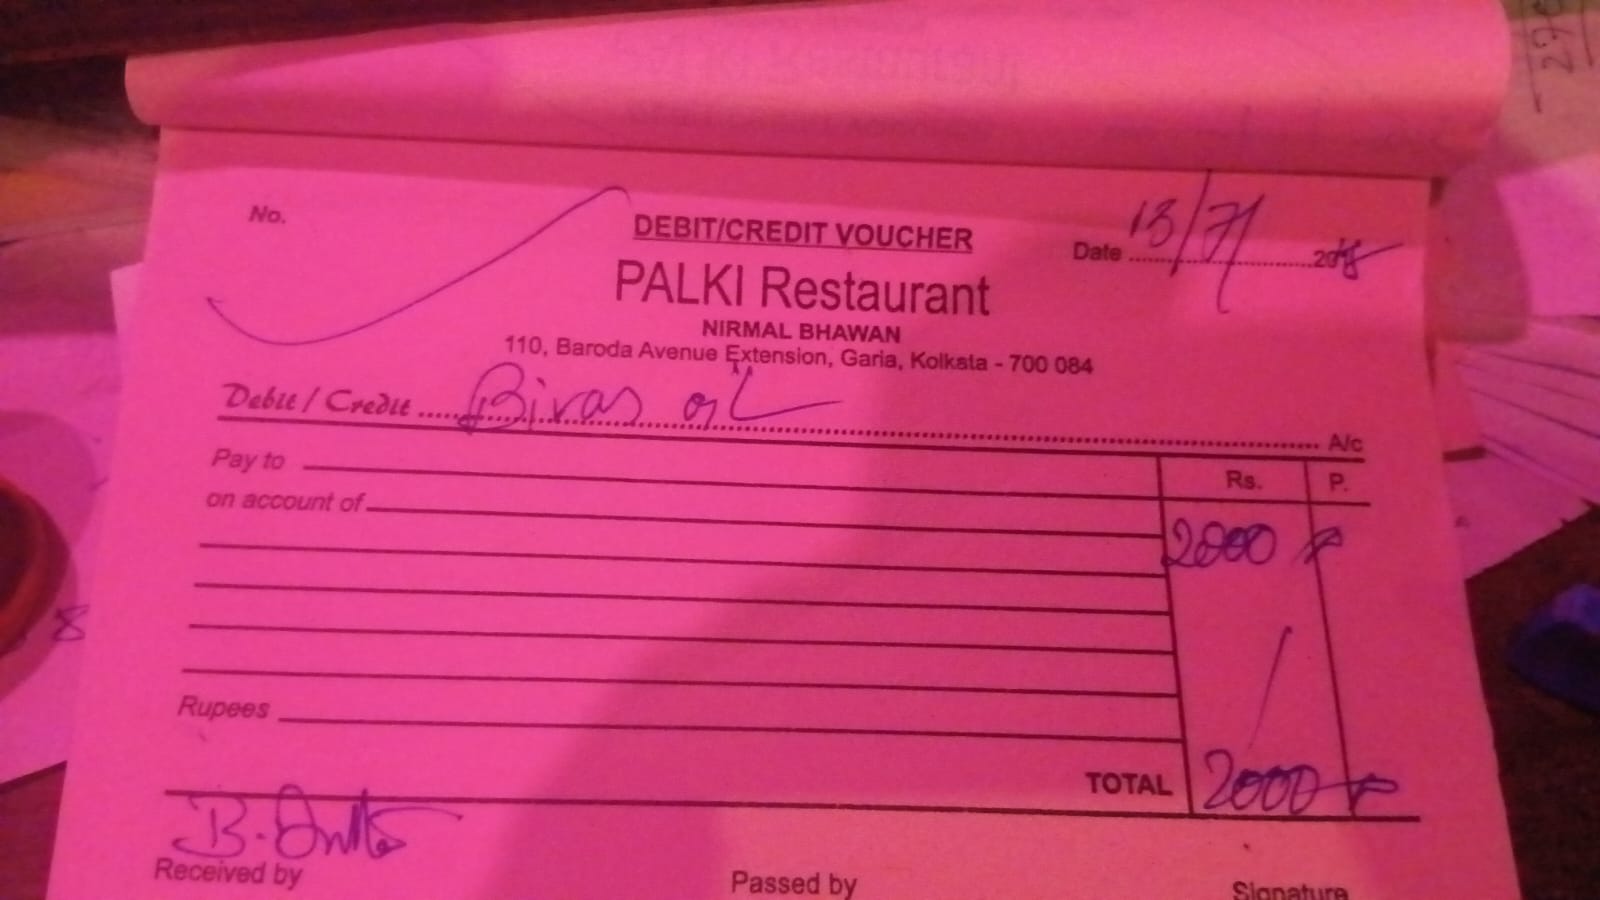 No.
DEBIT/CREDIT VOUCHER
Date 13/7/ 2018
PALKI Restaurant
NIRMAL BHAWAN
110, Baroda Avenue Extension, Garia, Kolkata - 700 084
Debit / Credit Bivas A/c
Pay to
Rs. P.
on account of
2000
Rupees
TOTAL 2000
Received by Passed by Signature